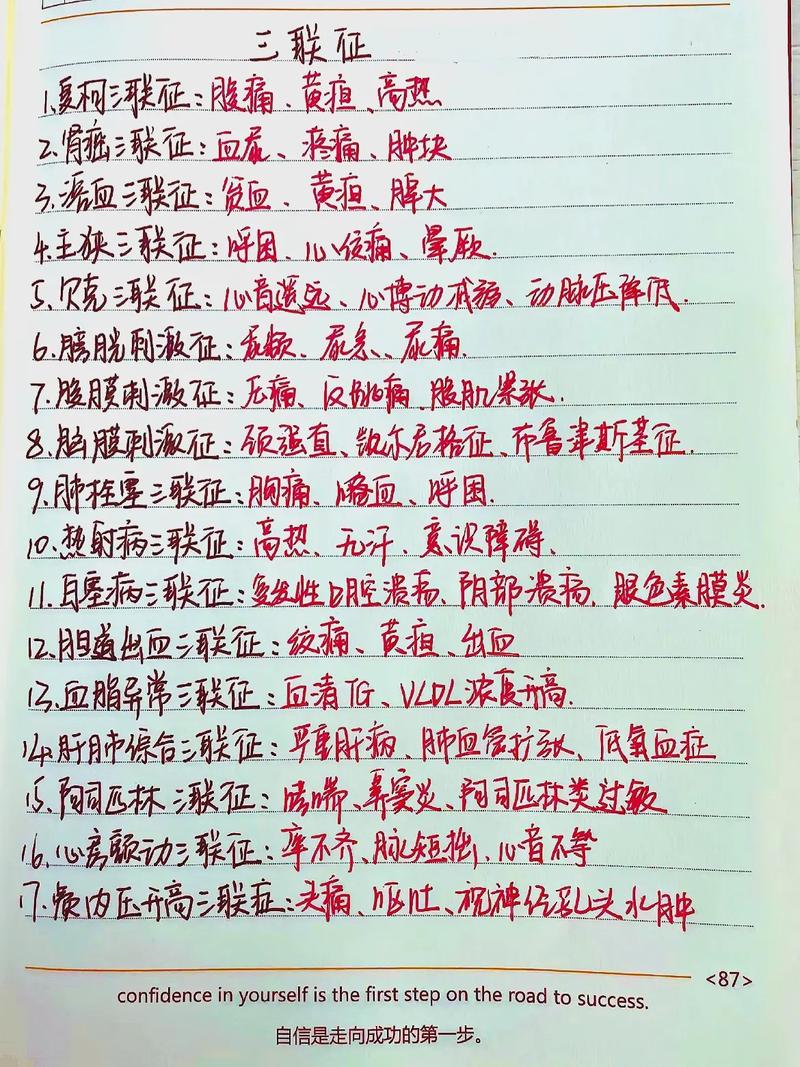 三联征
1.夏柯三联征：腹痛、黄疸、高热
2.肾癌三联征：血尿、疼痛、肿块
3.溶血三联征：贫血、黄疸、脾大
4.主狭三联征：呼困、心绞痛、晕厥.
5.贝克三联征：心音遥远、心博动减弱、动脉压降低.
6.膀胱刺激征：尿频、尿急、尿痛.
7.腹膜刺激征：压痛、反跳痛、腹肌紧张.
8.脑膜刺激征：颈强直、凯尔尼格征、布鲁津斯基征.
9.肺栓塞三联征：胸痛、咯血、呼困.
10.热射病三联征：高热、无汗、意识障碍、
11.白塞病三联征：复发性口腔溃疡、阴部溃疡、眼色素膜炎.
12.胆道出血三联征：绞痛、黄疸、出血
13.血脂异常三联征：血清TG、VLDL浓度升高.
14.肝肺综合三联征：严重肝病、肺血管扩张、低氧血症
15.阿司匹林三联征：哮喘、鼻窦炎、阿司匹林类过敏
16.心房颤动三联征：率不齐、脉短拙、心音不等
17.颅内压升高三联症：头痛、呕吐、视神经乳头水肿
<87>
confidence in yourself is the first step on the road to success.
自信是走向成功的第一步。